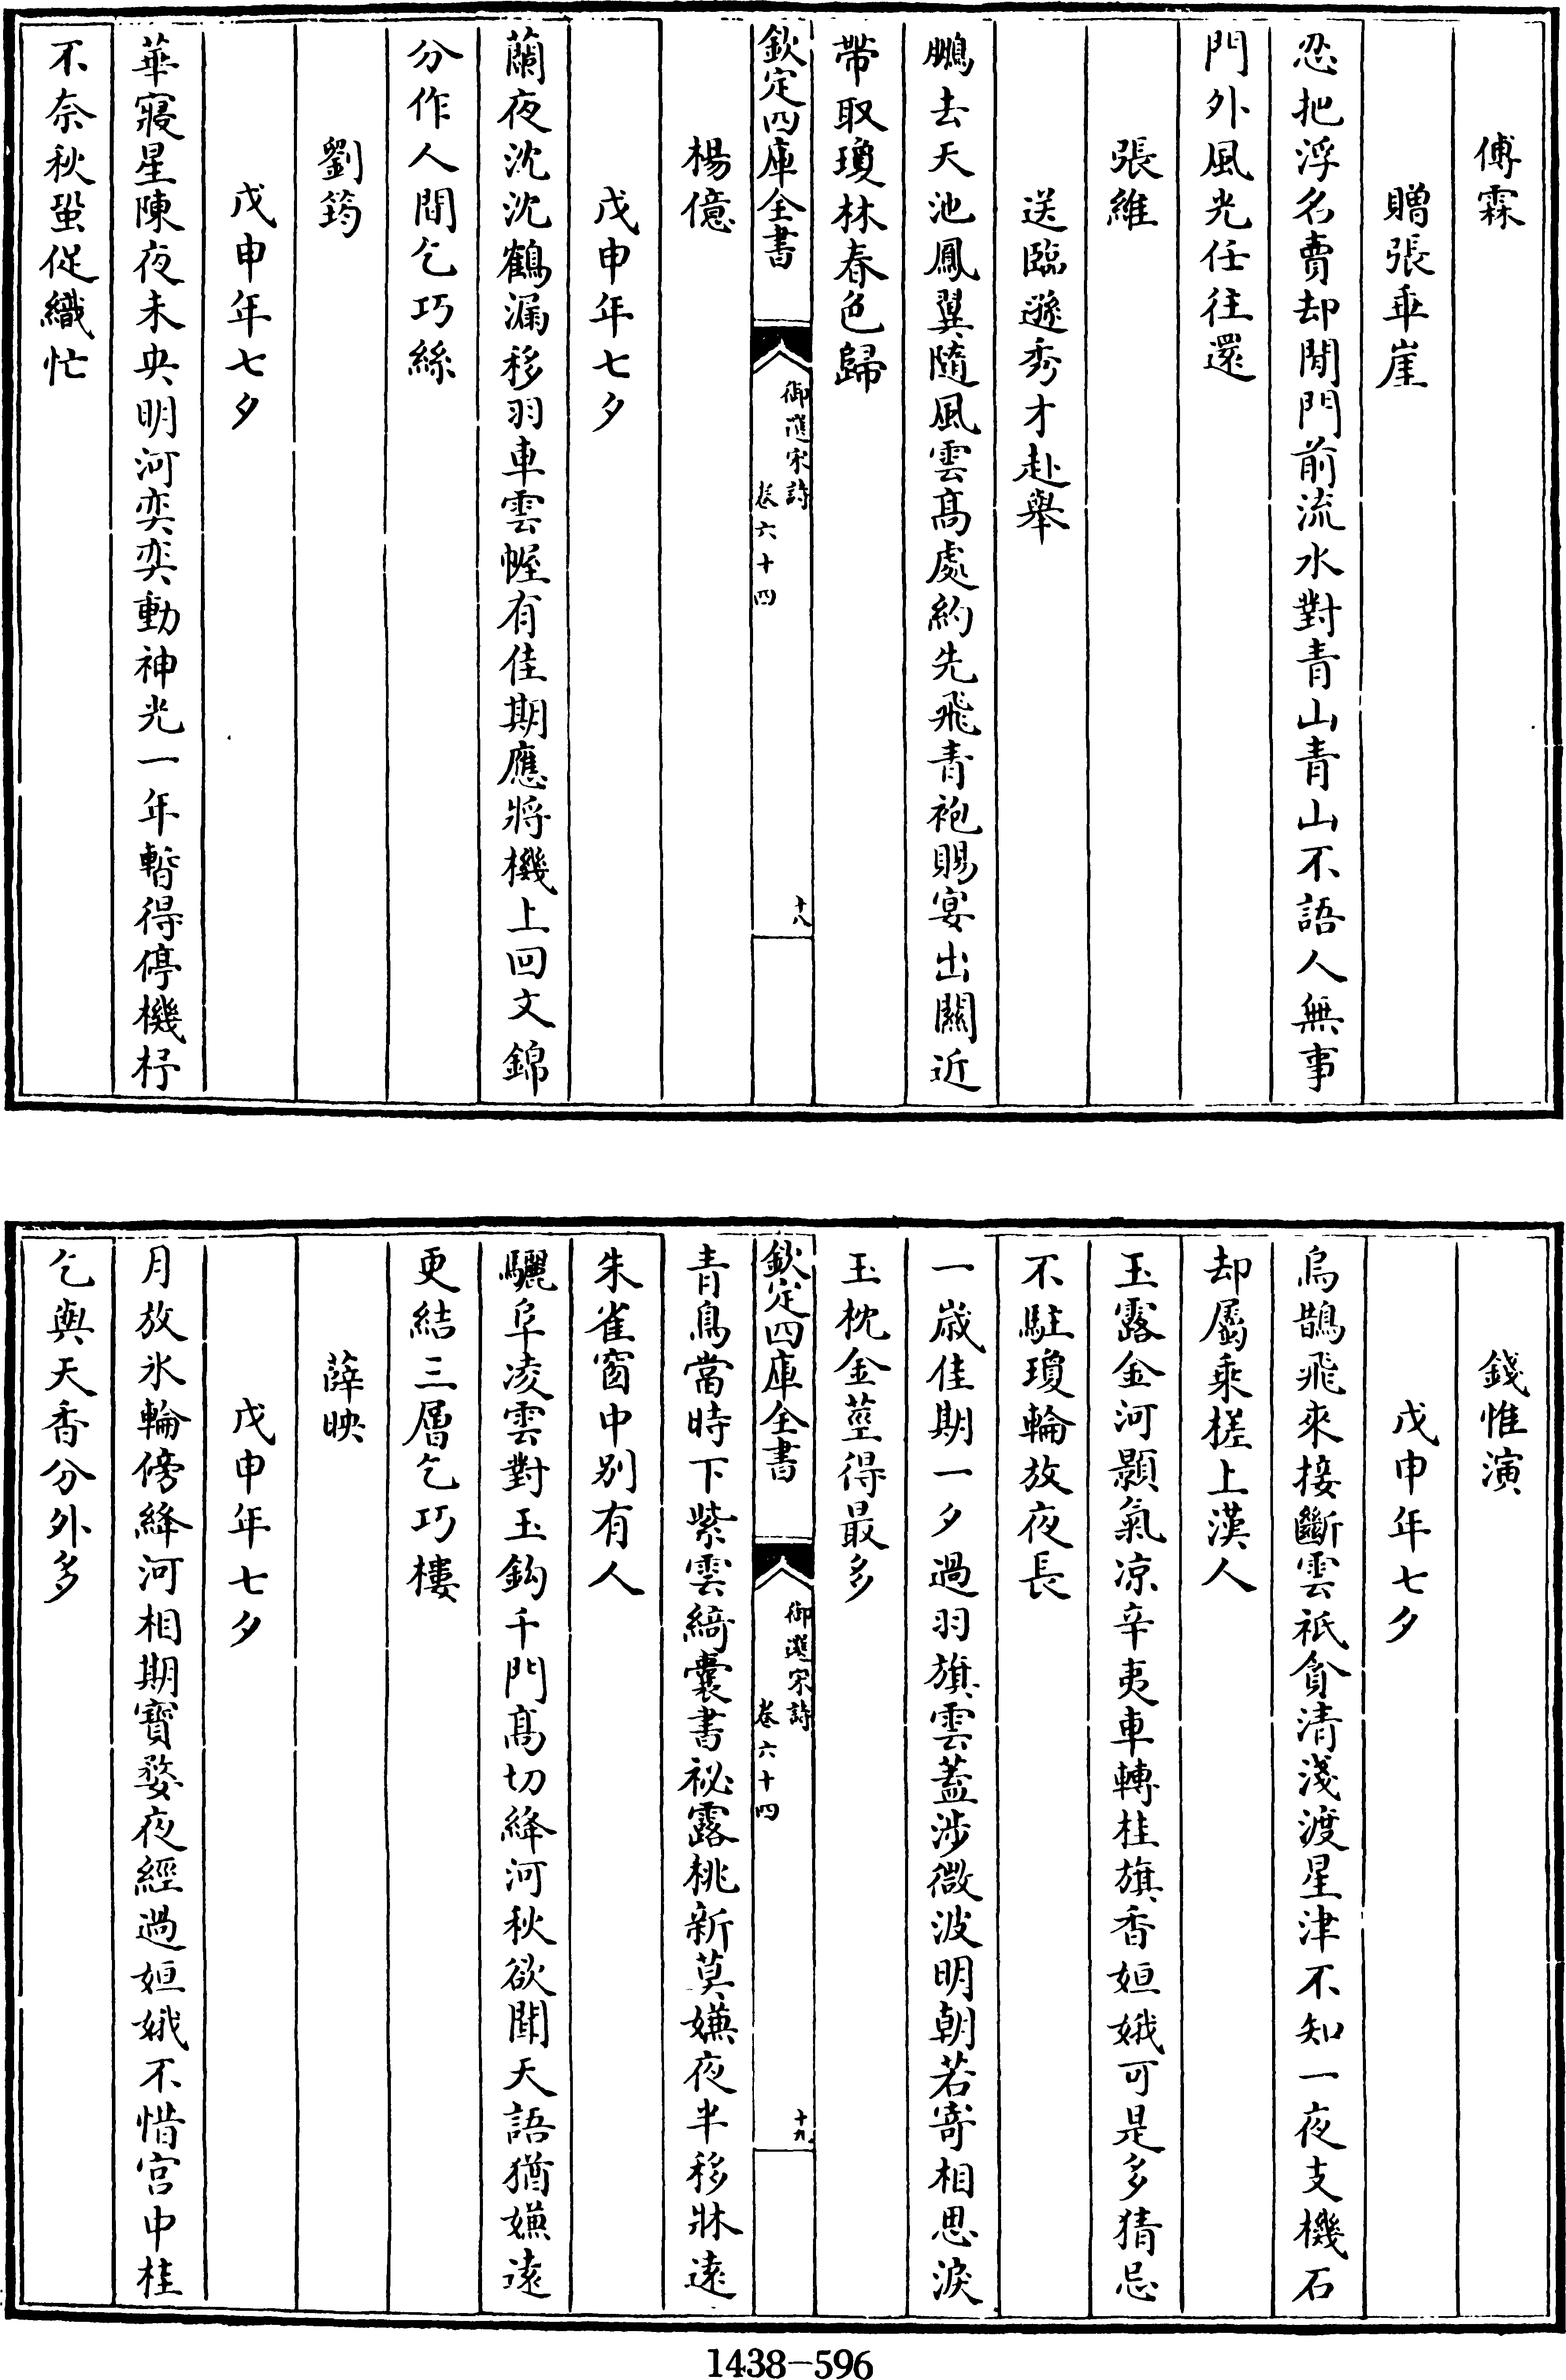 傅霖
贈張乖崖
忍把浮名賣却閒門前流水對青山青山不語人無事
門外風光任往還
張維
送臨遯秀才赴舉
鵬去天池鳳翼隨風雲髙處約先飛青袍賜宴出關近
帶取瓊林春色歸
欽定四庫全書
御選宋詩
卷六十四
十八
楊億
戊申年七夕
蘭夜沈沈鶴漏移羽車雲幄有佳期應將機上回文錦
分作人間乞巧絲
劉筠
戊申年七夕
華寢星陳夜未央明河奕奕動神光一年暫得停機杼
不奈秋蛩促織忙
錢惟演
戊申年七夕
烏鵲飛來接斷雲祇貪清淺渡星津不知一夜支機石
却屬乘槎上漢人
玉露金河顥氣凉辛夷車轉桂旗香姮娥可是多猜忌
不駐瓊輪放夜長
一歲佳期一夕過羽旗雲蓋涉微波明朝若寄相思淚
玉枕金莖得最多
欽定四庫全書
御選宋詩
卷六十四
十九
青鳥當時下紫雲綺囊書祕露桃新莫嫌夜半移牀遠
朱雀窗中别有人
驪阜凌雲對玉鈎千門髙切絳河秋欲聞天語猶嫌遠
更結三層乞巧樓
薛映
戊申年七夕
月放氷輪傍絳河相期寳婺夜經過姮娥不惜宫中桂
乞與天香分外多
1438-596